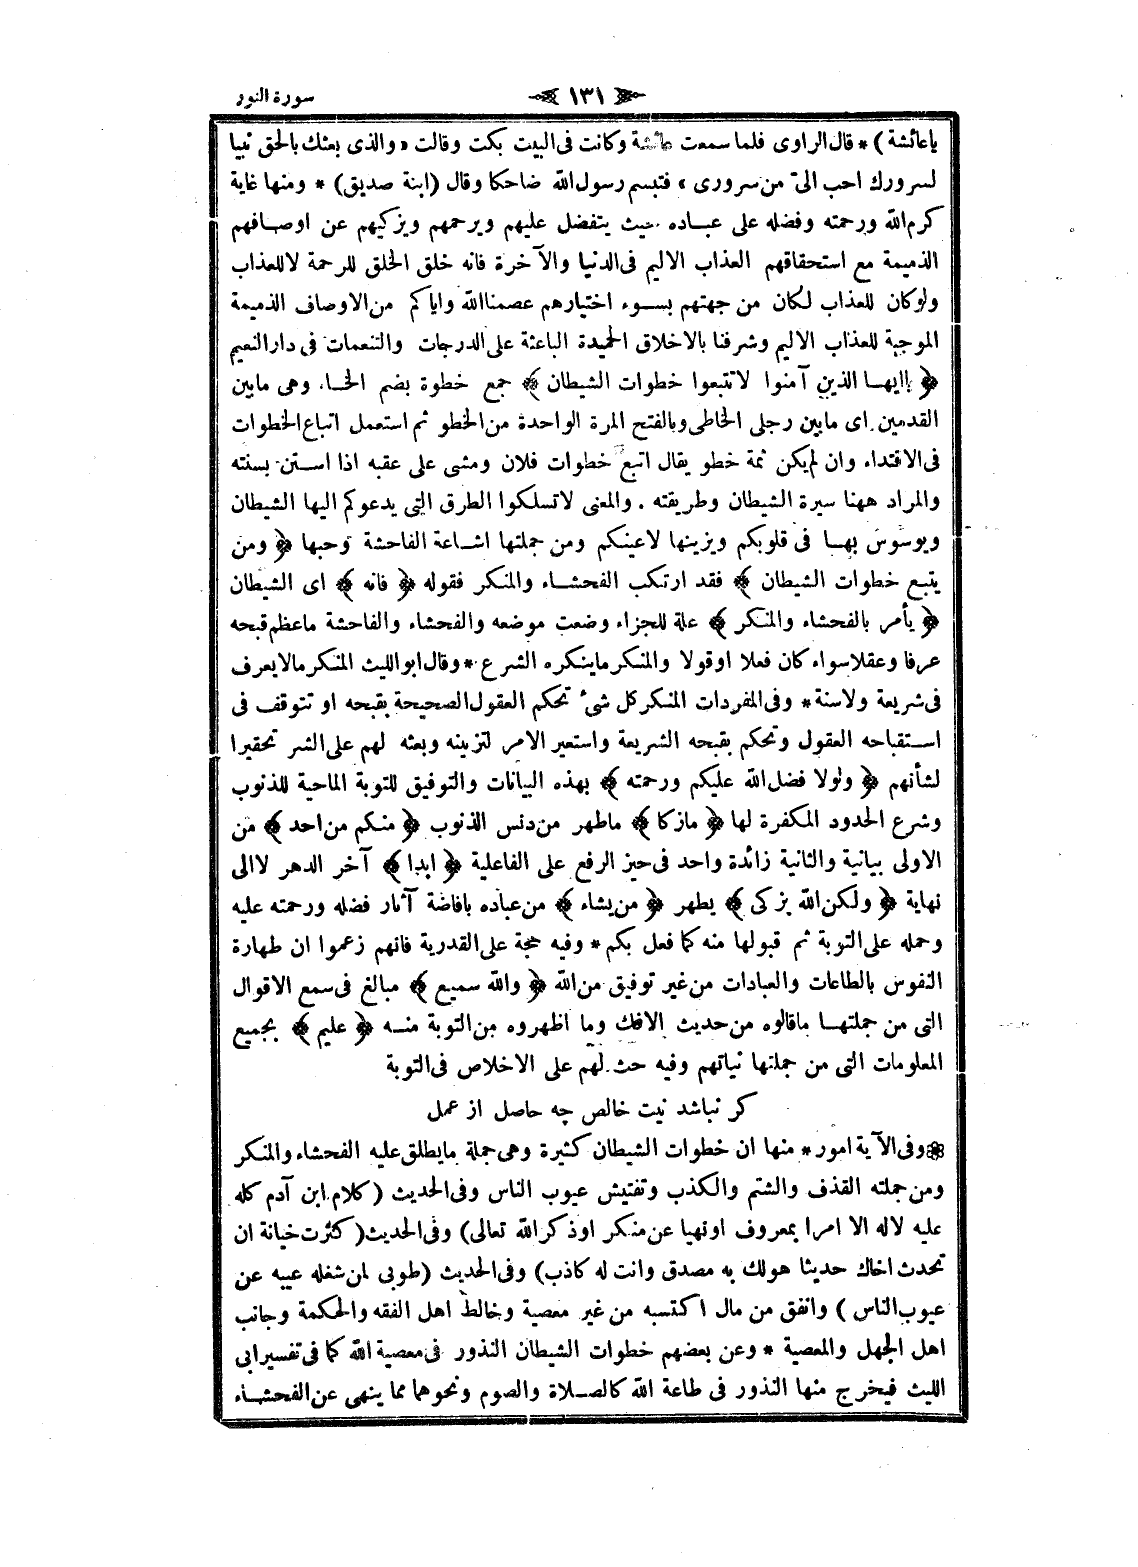 سورة النور ﴿ ١٣١ ﴾
ياعائشة ) * قال الراوى فلما سمعت عائشة وكانت فى البيت بكت وقالت « والذى بعثك بالحق نبيا
لسرورك احب الىّ من سرورى » فتبسم رسول الله ضاحكا وقال (ابنة صديق) * ومنها غاية
كرم الله ورحمته وفضله على عباده حيث يتفضل عليهم ويرحمهم ويزكيهم عن اوصافهم
الذميمة مع استحقاقهم العذاب الاليم فى الدنيا والآخرة فانه خلق الخلق للرحمة لا للعذاب
ولوكان للعذاب لكان من جهتهم بسوء اختيارهم عصمنا الله واياكم من الاوصاف الذميمة
الموجبة للعذاب الاليم وشرفنا بالاخلاق الحميدة الباعثة على الدرجات والتنعمات فى دار النعيم
﴿ ياايها الذين آمنوا لاتتبعوا خطوات الشيطان ﴾ جمع خطوة بضم الخاء وهى مابين
القدمين اى مابين رجلى الخاطى وبالفتح المرة الواحدة من الخطو ثم استعمل اتباع الخطوات
فى الاقتداء وان لم يكن ثمة خطو يقال اتبع خطوات فلان ومشى على عقبه اذا استن بسنته
والمراد ههنا سيرة الشيطان وطريقته . والمعنى لاتسلكوا الطرق التى يدعوكم اليها الشيطان
ويوسوس بها فى قلوبكم ويزينها لاعينكم ومن جملتها اشاعة الفاحشة وحبها ﴿ ومن
يتبع خطوات الشيطان ﴾ فقد ارتكب الفحشاء والمنكر فقوله ﴿ فانه ﴾ اى الشيطان
﴿ يأمر بالفحشاء والمنكر ﴾ علة للجزاء وضعت موضعه والفحشاء والفاحشة ماعظم قبحه
عرفا وعقلا سواء كان فعلا اوقولا والمنكر ماينكره الشرع * وقال ابو الليث المنكر مالايعرف
فى شريعة ولاسنة * وفى المفردات المنكر كل شىء تحكم العقول الصحيحة بقبحه او تتوقف فى
استقباحه العقول وتحكم بقبحه الشريعة واستعير الامر لتزيينه وبعثه لهم على الشر تحقيرا
لشأنهم ﴿ ولولا فضل الله عليكم ورحمته ﴾ بهذه البيانات والتوفيق للتوبة الماحية للذنوب
وشرع الحدود المكفرة لها ﴿ مازكا ﴾ ماطهر من دنس الذنوب ﴿ منكم من احد ﴾ من
الاولى بيانية والثانية زائدة واحد فى حيز الرفع على الفاعلية ﴿ ابدا ﴾ آخر الدهر لا الى
نهاية ﴿ ولكن الله يزكى ﴾ يطهر ﴿ من يشاء ﴾ من عباده بافاضة آثار فضله ورحمته عليه
وحمله على التوبة ثم قبولها منه كما فعل بكم * وفيه حجة على القدرية فانهم زعموا ان طهارة
النفوس بالطاعات والعبادات من غير توفيق من الله ﴿ والله سميع ﴾ مبالغ فى سمع الاقوال
التى من جملتها ماقالوه من حديث الافك وما اظهروه من التوبة منه ﴿ عليم ﴾ بجميع
المعلومات التى من جملتها نياتهم وفيه حث لهم على الاخلاص فى التوبة
كر نباشد نيت خالص چه حاصل از عمل
وفى الآية امور * منها ان خطوات الشيطان كثيرة وهى جملة مايطلق عليه الفحشاء والمنكر
ومن جملته القذف والشتم والكذب وتفتيش عيوب الناس وفى الحديث (كلام ابن آدم كله
عليه لاله الا امرا بمعروف اونهيا عن منكر اوذكر الله تعالى) وفى الحديث (كثرت خيانة ان
تحدث اخاك حديثا هولك به مصدق وانت له كاذب) وفى الحديث (طوبى لمن شغله عيبه عن
عيوب الناس ) وانفق من مال اكتسبه من غير معصية وخالط اهل الفقه والحكمة وجانب
اهل الجهل والمعصية * وعن بعضهم خطوات الشيطان النذور فى معصية الله كما فى تفسير ابى
الليث فيخرج منها النذور فى طاعة الله كالصلاة والصوم ونحوهما مما ينهى عن الفحشاء